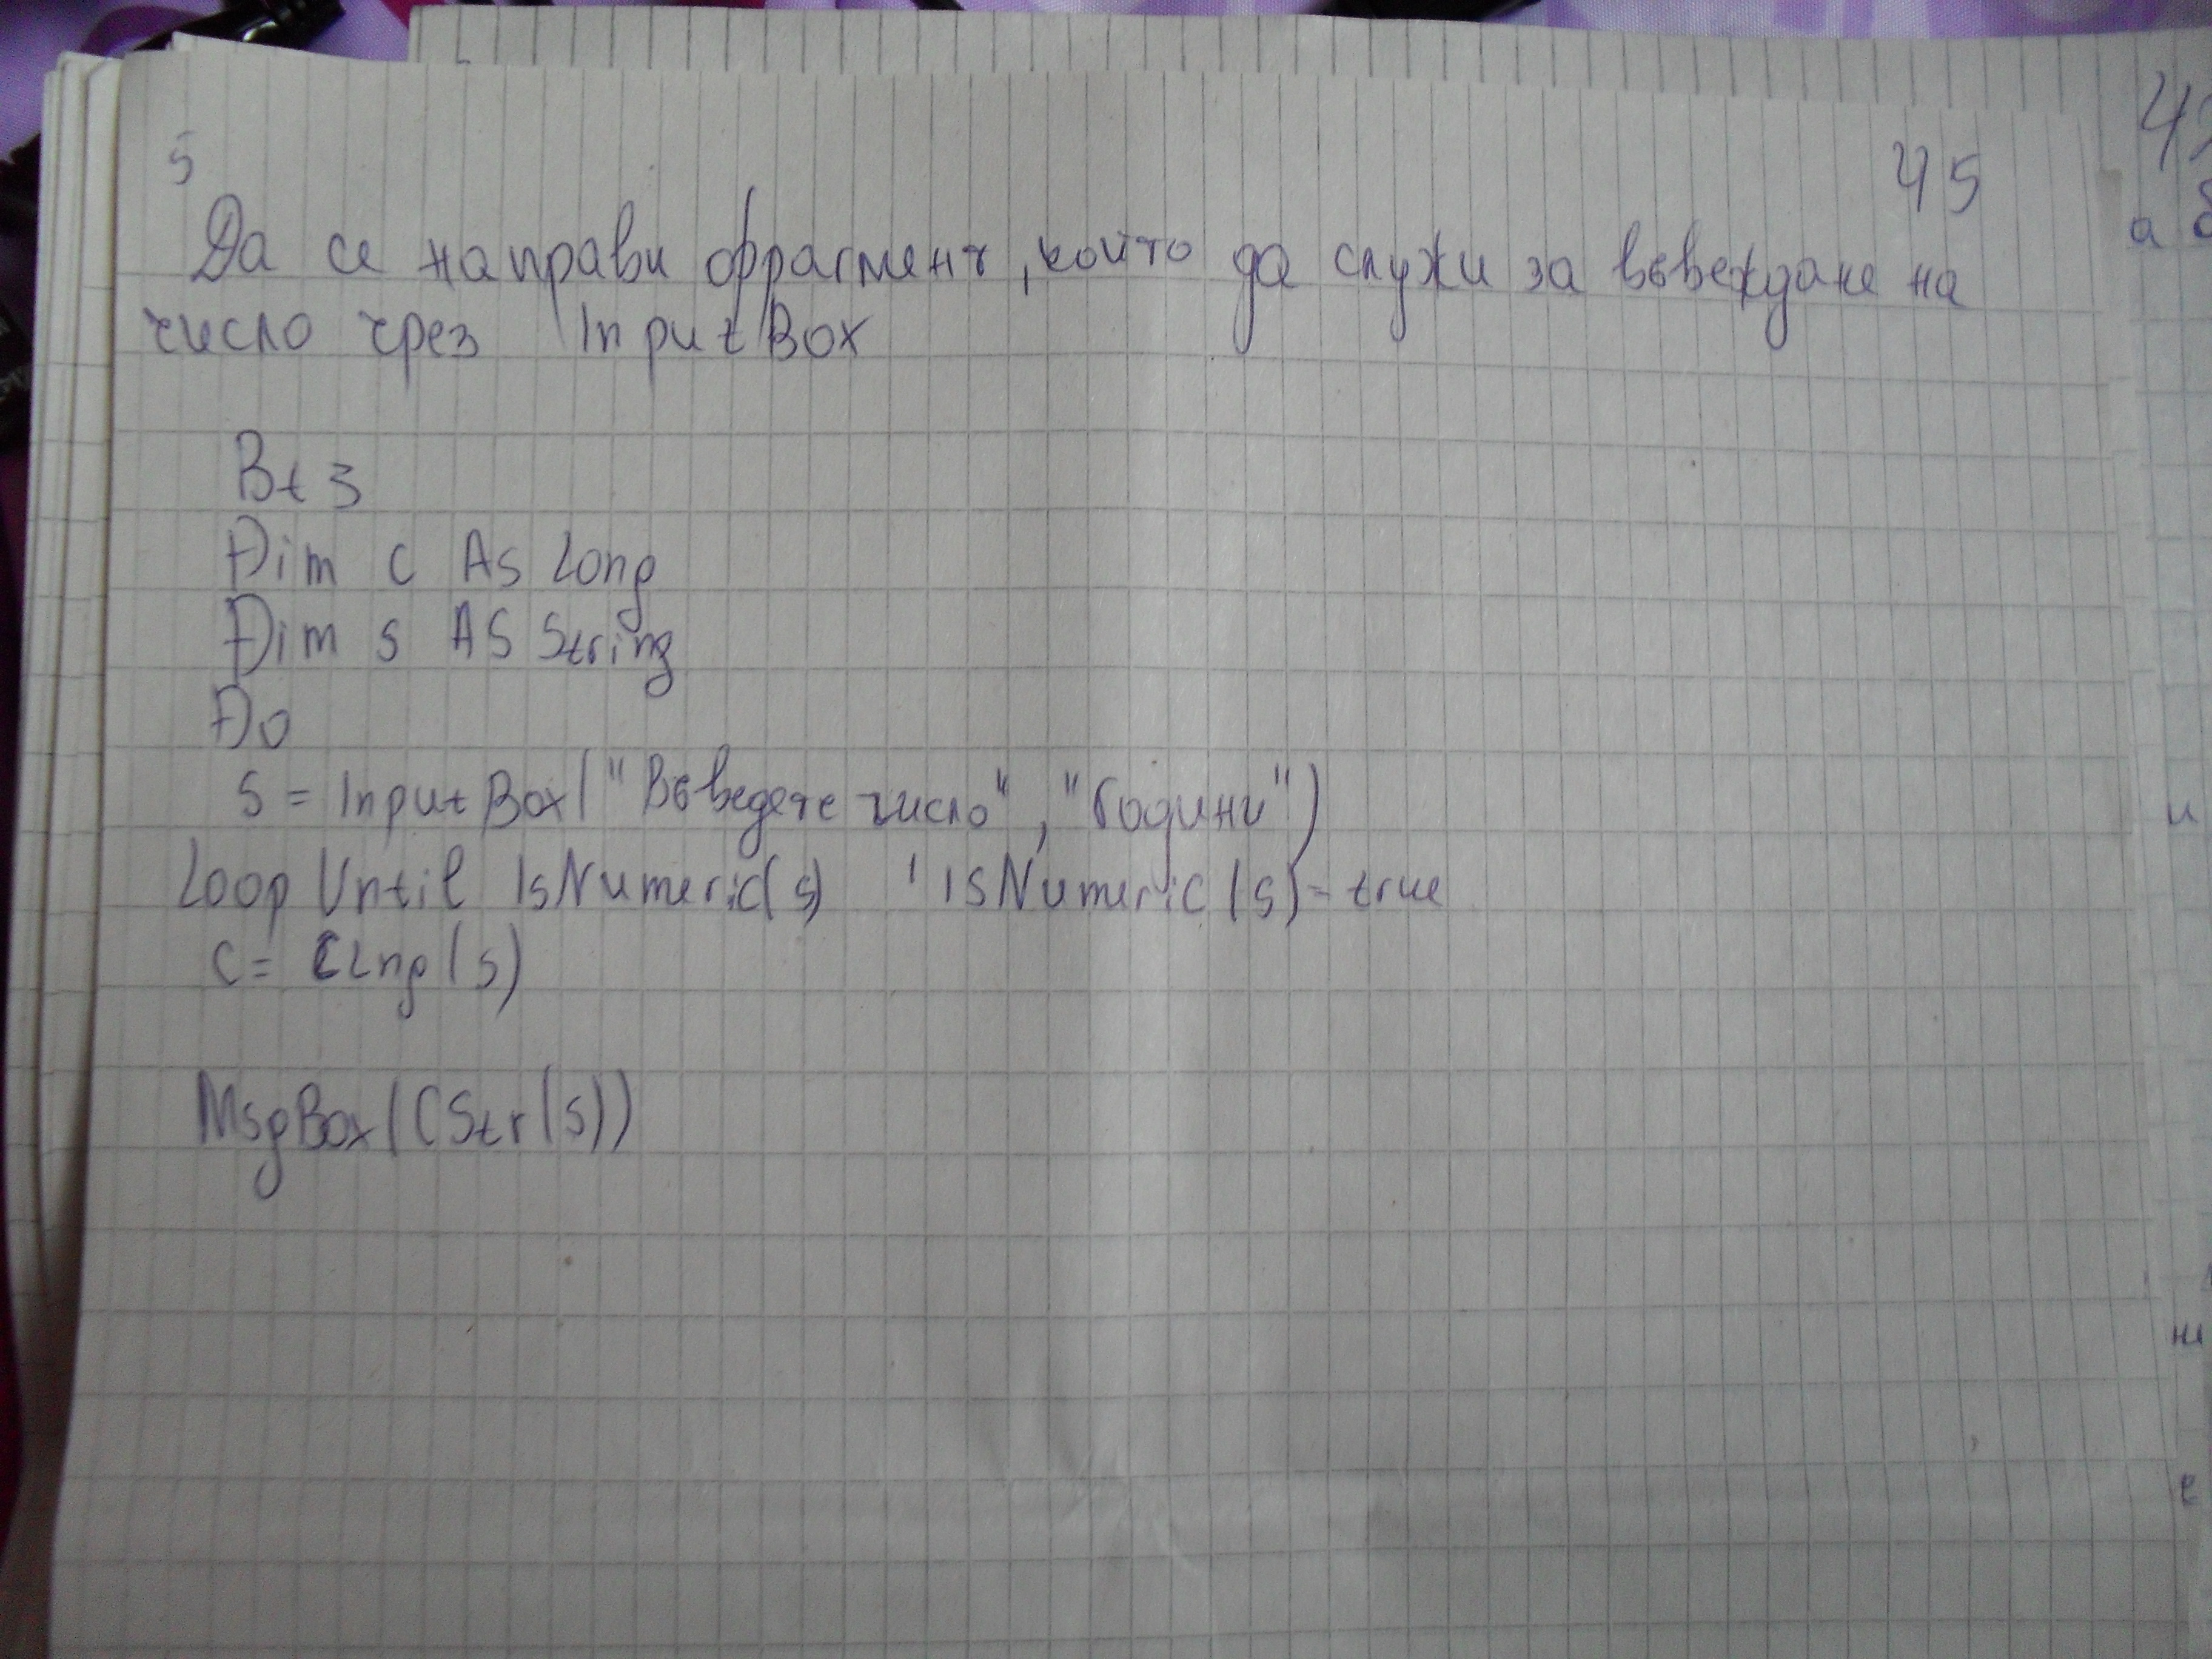 5
45
Да се направи фрагмент, който да служи за въвеждане на
число чрез InputBox
Bt 3
Dim c As Long
Dim s AS String
Do
s = InputBox("Въведете число", "Години")
Loop Until IsNumeric(s) ' ISNumeric(s)=true
c= CLng(s)
MsgBox(CStr(s))
а б
и
е